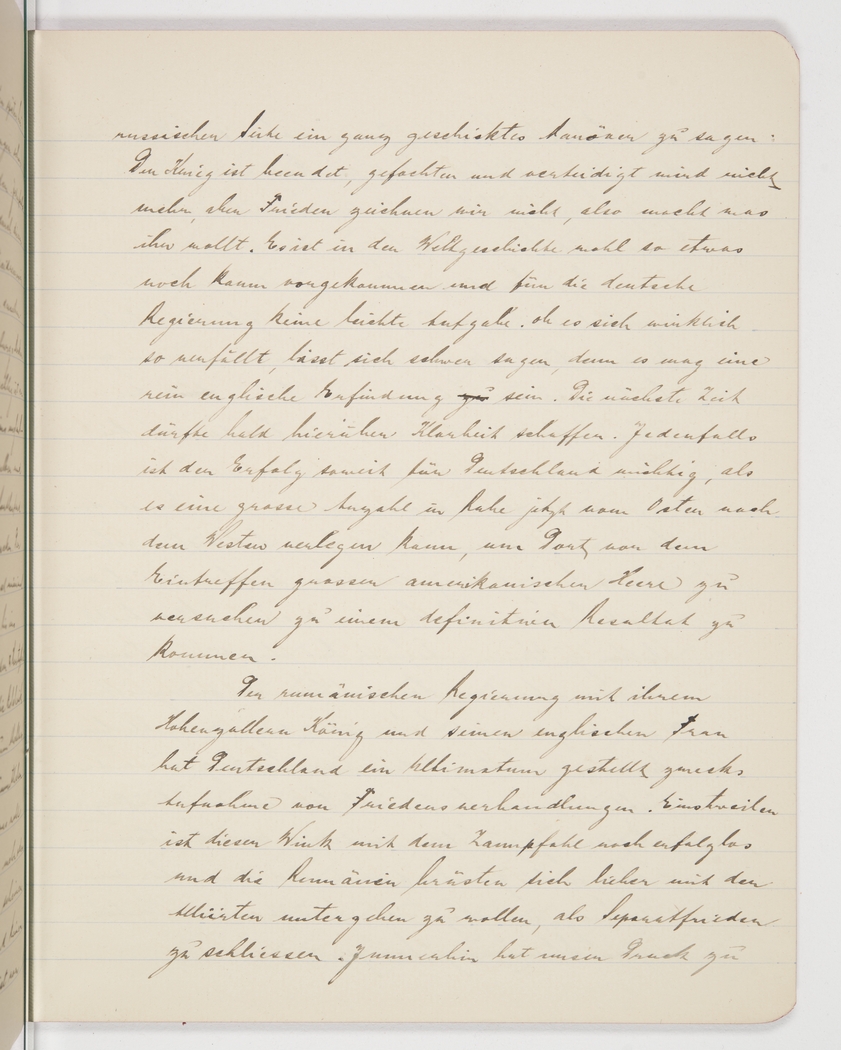 russischen Seite ein ganz geschicktes Manöver zu sagen:
Der Krieg ist beendet, gefochten und verteidigt wird nicht
mehr, aber Frieden zeichnen wir nicht, also macht was
ihr wollt. Es ist in der Weltgeschichte wohl so etwas
noch kaum vorgekommen und für die deutsche
Regierung keine leichte Aufgabe. Ob es sich wirklich
so verhällt, lässt sich schwer sagen, denn es mag eine
rein englische Erfindung zu sein. Die nächste Zeit
dürfte bald hierüber Klarheit schaffen. Jedenfalls
ist der Erfolg soweit für Deutschland wichtig, als
es eine grosse Anzahl in Ruhe jetzt vom Osten nach
dem Westen verlegen kann, um Dort vor dem
Eintreffen grosser amerikanischer Heere zu
versuchen zu einem definitiven Resultat zu
kommen.
Der rumänischen Regierung mit ihrem
Hohenzollern König und seiner englischen Frau
hat Deutschland ein Ultimatum gestellt zwecks
Aufnahme von Friedensverhandlungen. Einstweilen
ist dieser Wink mit dem Zaunpfahl noch erfolglos
und die Rumänien brüsten sich lieber mit den
Alliirten untergehen zu wollen, als Separatfrieden
zu schliessen. Immerhin hat unser Druck zu